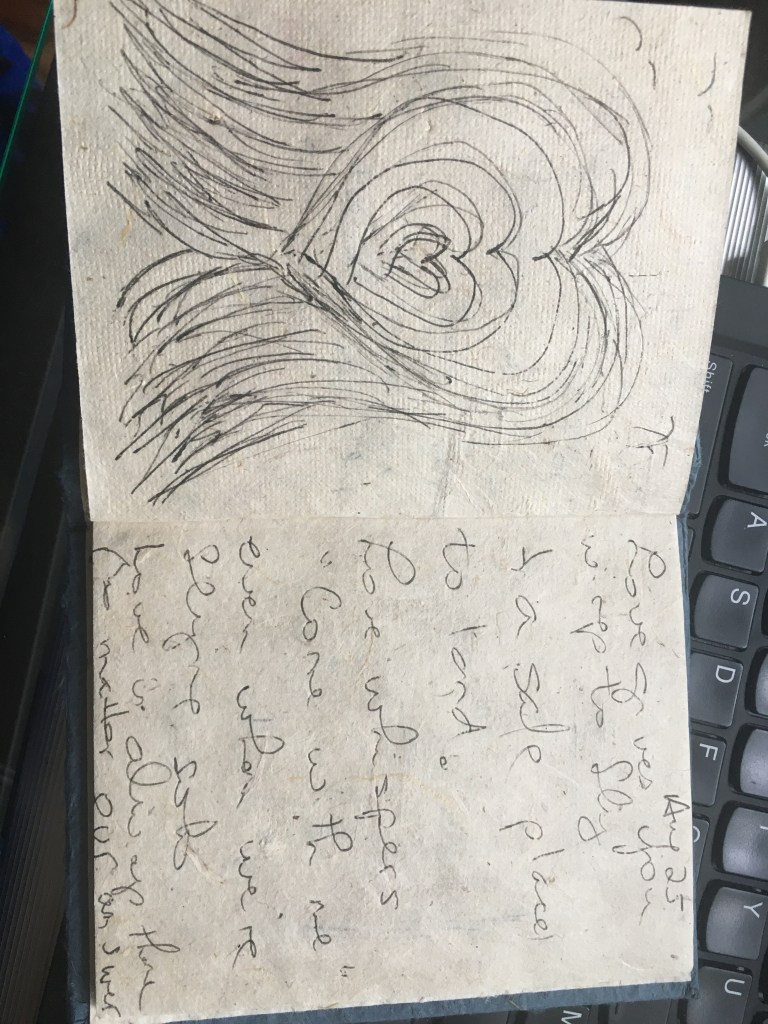 Aug 25
Love gives you
wings to fly
& a safe place
to land.
Love whispers
"Come with me"
even when we're
flying solo
Love is always there
no matter our answer
Shift
A
S
D
F
G
Y
U